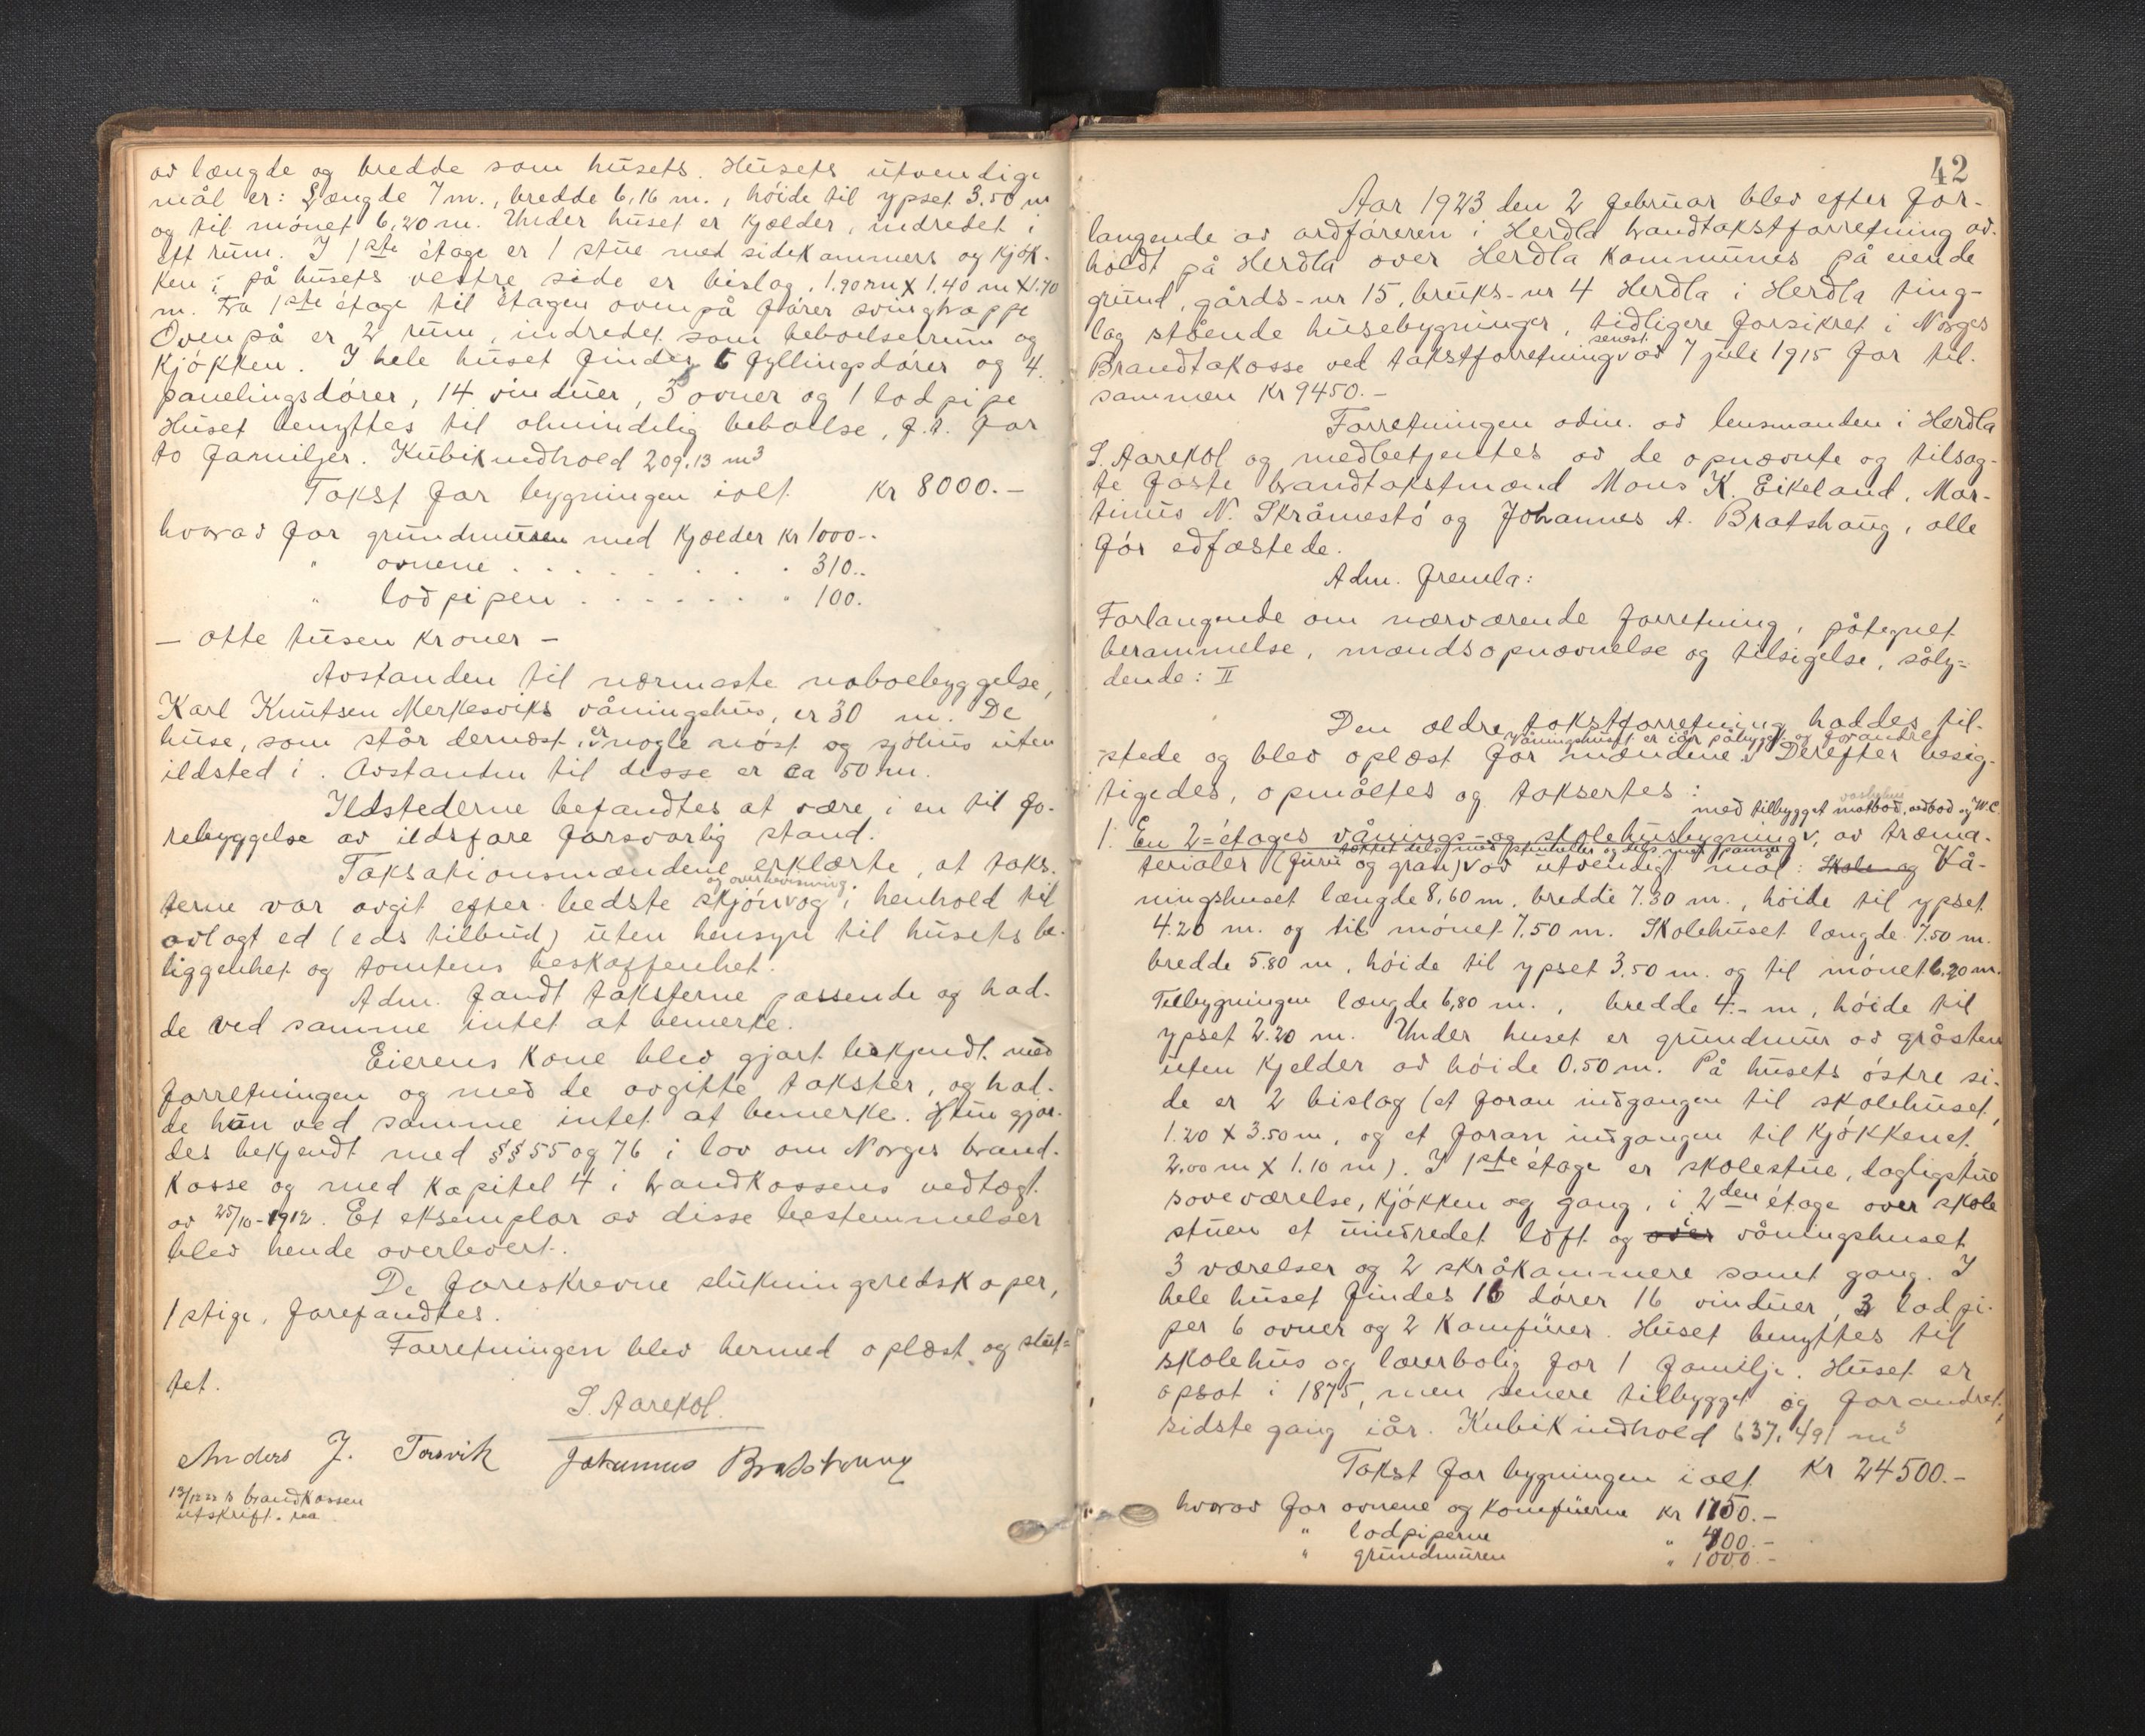 av længde og bredde som husets. Husets utvendige
mål er: Længde 7 m., bredde 6,16 m., høide til ypset 3.50 m
og til mønet 6,20 m. Under huset er kjælder, indredet i
ett rum. I 1ste étage er 1 stue med sidekammers og kjøk-
ken; på husets vestre side er bislag, 1.90 m X 1.40 m X 1.70
m. Fra 1ste étage til étagen ovenpå fører svingtrappe
Ovenpå er 2 rum, indredet som beboelsesrum og
kjøkken. I hele huset findes 6 fyllingsdører og 4
panelingsdører, 14 vinduer, 3 ovner og 1 lodpipe
Huset benyttes til almindelig beboelse, f.t. for
to familjer. Kubikindhold 209,13 m3
Takst for bygningen ialt kr 8000.-
hvorav for grundmuren med kjælder kr 1000.-
" ovnene . . . . . . . . " 310.-
" lodpipen . . . . . . " 100.
- otte tusen kroner -
Avstanden til nærmeste nabobebyggelse,
Karl Knutsen Merkesviks våningshus, er 30 m. De
huse, som står dernæst, er nogle nøst og sjøhus uten
ildsted i. Avstanden til disse er ca 50 m.
Ildstederne befandtes at være i en til fo-
rebyggelse av ildsfare forsvarlig stand.
Taksationsmændene erklærte, at taks-
og overbevisning
terne var avgit efter bedste skjøn v og i henhold til
avlagt ed (eds tilbud) uten hensyn til husets be-
liggenhet og tomtens beskaffenhet.
Adm. fandt taksterne passende og had-
de ved samme intet at bemerke.
Eierens kone blev gjort bekjendt med
forretningen og med de avgitte takster, og had-
de hun ved samme intet at bemerke. Hun gjor-
des bekjendt med §§ 55 og 76 i lov om Norges brand-
kasse og med kapitel 4 i brandkassens vedtægt.
av 25/10-1912. Et eksemplar av disse bestemmelser
blev hende overlevert.
De foreskrevne slukningsredskaper,
1 stige, forefandtes.
Forretningen blev hermed oplæst og slut-
tet.
S. Aarekol.
Anders J. Torsvik Johannes Bratshaug
brandkassen
utskrift.
42
Aar 1923 den 2 februar blev efter for-
langende av ordføreren i Herdla brandtakstforretning av-
holdt på Herdla over Herdla kommunes på eiende
grund, gårds-nr 15, bruks-nr 4 Herdla i Herdla ting-
lag stående husebygninger, tidligere forsikret i Norges
senest
Brandtakasse ved takstforretning v av 7 juli 1915 for til-
sammen kr 9450.-
Forretningen adm. av lensmanden i Herdla
S. Aarekol og medbetjentes av de opnævnte og tilsag-
te faste brandtakstmænd Mons K. Eikeland, Mar-
tinus N. Skråmestø og Johannes A. Bratshaug, alle
før edfæstede.
Adm. fremla:
Forlangende om nærværende forretning, påtegnet
berammelse, mændsopnævnelse og tilsigelse, såly-
dende: II
Den ældre takstforretning haddes til-
Våningshuset er iår påbygget og forandret
stede og blev oplæst for mændene. v Derefter besig-
tigedes, opmåltes og taksertes:
vaskehus
med tilbygget matbod, vedbod og W.C.
1. En 2-étages vånings- og skolehusbygning v, av træma-
tækket dels med stenheller og dels med panner
terialer (furu og gran) v av utvendigt mål: Skole og Vå-
ningshuset længde 8,60 m, bredde 7.30 m., høide til ypset
4.20 m. og til mønet 7.50 m. Skolehuset længde 7.50 m.
bredde 5.80 m, høide til ypset 3.50 m. og til mønet 6,20 m.
Tilbygningen længde 6,80 m., bredde 4.- m, høide til
ypset 2.20 m. Under huset er grundmur av gråsten
uten kjelder av høide 0.50 m. På husets østre si-
de er 2 bislag (et foran indgangen til skolehuset,
1.20 X 3.50 m, og et foran indgangen til kjøkkenet,
2.00 m X 1.10 m). I 1ste étage er skolestue, dagligstue
soveværelse, kjøkken og gang, i 2den étage over skole
i
stuen et uindredet loft og over våningshuset
3 værelser og 2 skråkammere samt gang. I
hele huset findes 16 dører 16 vinduer, 3 lodpi-
per 6 ovner og 2 komfürer. Huset benyttes til
skolehus og lærerbolig for 1 familje. Huset er
opsat i 1875, men senere tilbygget og forandret,
sidste gang iår. Kubikindhold 637,491 m3
Takst for bygningen ialt kr 24500.-
hvorav for ovnene og komfürerne kr 1150.-
" lodpiperne " 400.-
" grundmuren " 1000.-